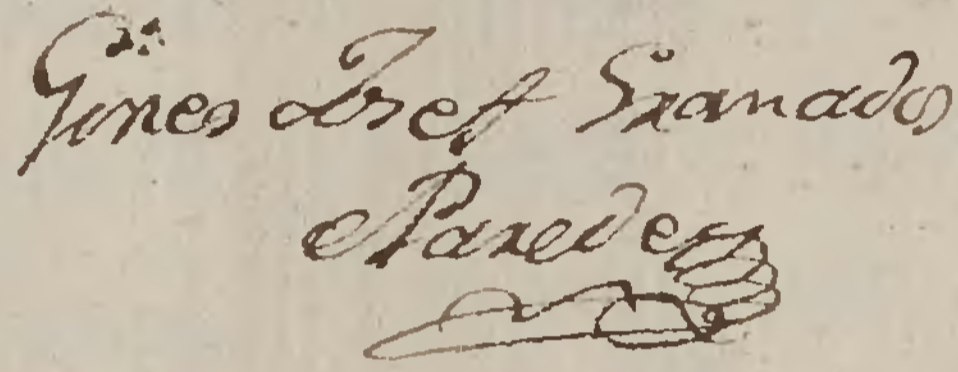 Gines Josef Granados
Paredes